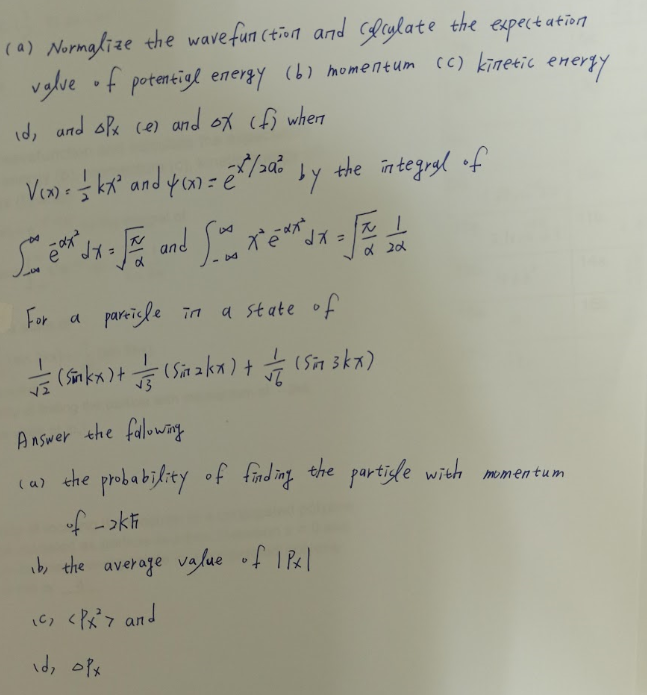 (a) Normalize the wavefunction and calculate the expectation
value of potential energy (b) momentum (c) kinetic energy
(d) and ΔPx (e) and ΔX (f) when
V(x) = 1/2 kx² and ψ(x) = e^(-x²/2a₀²) by the integral of
∫_{-∞}^{∞} e^(-αx²) dx = √(π/α) and ∫_{-∞}^{∞} x² e^(-αx²) dx = √(π/α) 1/2α
For a particle in a state of
1/√2 (sin kx) + 1/√3 (sin 2kx) + 1/√6 (sin 3kx)
Answer the following
(a) the probability of finding the particle with momentum
of -2kħ
(b) the average value of |Px|
(c) <Px²> and
(d) ΔPx